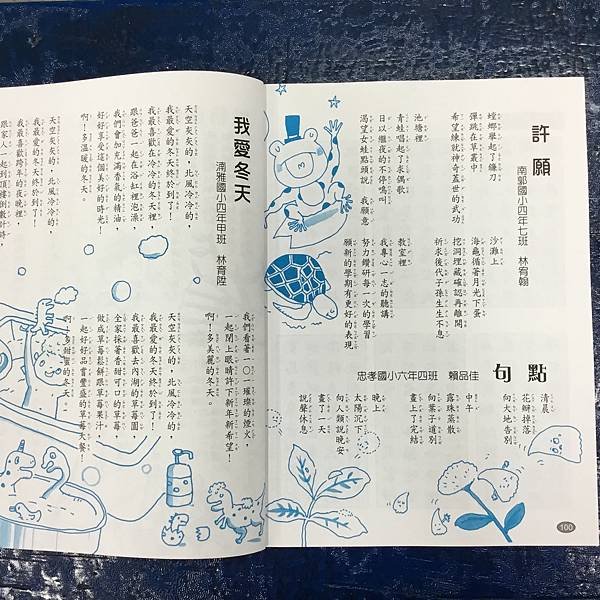 許願
南郭國小四年七班　林宥翰
螳螂舉起了鐮刀
彈跳在草叢中
希望練就神奇蓋世的武功
池塘裡
青蛙唱起了求偶歌
日以繼夜的不停鳴叫
渴望女蛙點頭說　我願意
沙灘上
海龜循著月光下蛋
挖洞埋藏確認再離開
祈求後代子孫生生不息
教室裡
我專心一志的聽講
努力鑽研每一次的學習
願新的學期有更好的表現
句點
忠孝國小六年四班　賴品佳
清晨
花瓣掉落
向大地告別
中午
露珠蒸散
向葉子道別
畫上了完結
晚上
太陽沉下
向人類說晚安
畫了一天
說聲休息
100
我愛冬天
湳雅國小四年甲班　林育陞
天空灰灰的，北風冷冷的，
我最愛的冬天終於到了！
我最喜歡在冷冷的冬天裡，
跟爸爸一起在浴缸裡泡澡，
我們會加充滿香氣的精油，
好好享受這個美好的時光！
啊！多溫暖的冬天。
天空灰灰的，北風冷冷的，
我最愛的冬天終於到了！
我最喜歡跨年的夜晚裡，
跟家人一起到頂樓倒數計時
我們看著一○一璀璨的煙火，
一起閉上眼睛許下新年新希望！
啊！多美麗的冬天。
天空灰灰的，北風冷冷的
我最愛的冬天終於到了！
我最喜歡去內湖的草莓園，
全家採著香甜可口的草莓，
做成草莓鬆餅跟草莓果汁，
一起好好品嘗豐盛的草莓大餐！
啊！多甜蜜的冬天。